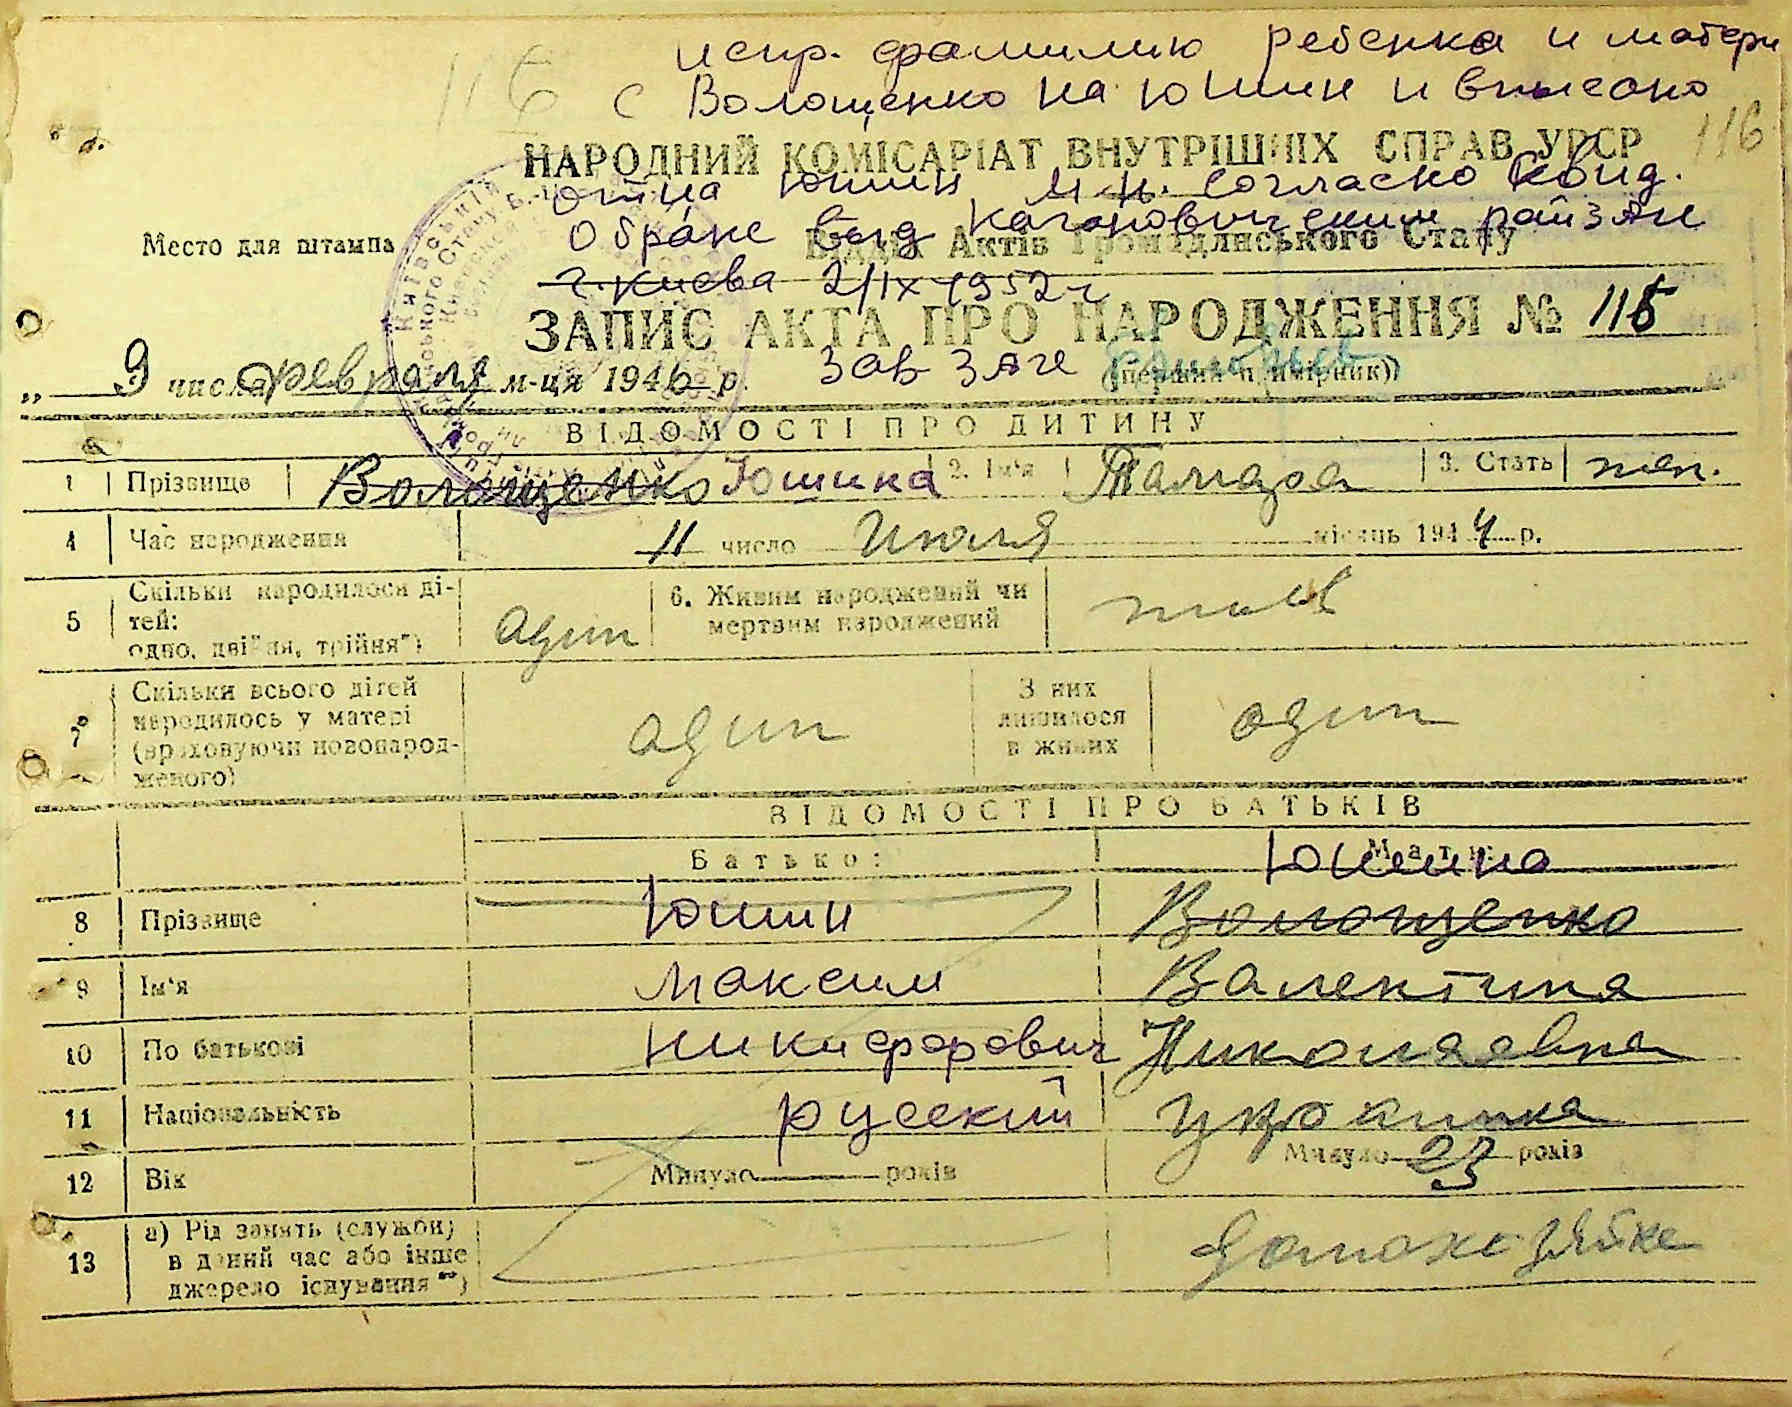 испр. фамилию ребенка и матери
с Волощенко на Юшин и вписано
116
116
НАРОДНИЙ КОМІСАРІАТ ВНУТРІШНІХ СПРАВ УРСР
отца Юшин М.Н. согласно свид.
о браке выд Кагановическим райзАГС
Место для штампа
Відділ Актів Громадянського Стану
г. Киева 2/IX-1952 г
ЗАПИС АКТА ПРО НАРОДЖЕННЯ № 115
„ 9 числа февраля м-ця 1946 р.
Зав ЗАГС
(перший примірник)
ВІДОМОСТІ ПРО ДИТИНУ
1 Прізвище Волощенко Юшина 2. Ім'я Тамара 3. Стать жен.
4 Час народження 11 число Июля місяць 1944 р.
5 Скільки народилося ді-
тей:
одно, двійня, трійня*) один
6. Живим народжений чи
мертвим народжений
7 Скільки всього дітей
народилось у матері
(враховуючи новонарод-
женого) один
З них
лишилося
в живих один
ВІДОМОСТІ ПРО БАТЬКІВ
Батько: Мати: Юшина
8 Прізвище Юшин Волощенко
9 Ім'я Максим Валентина
10 По батькові Никифорович Николаевна
11 Національність русский украинка
12 Вік Минуло років Минуло 23 років
13 а) Рід занять (служби)
в даний час або інше
джерело існування **) домохозяйка